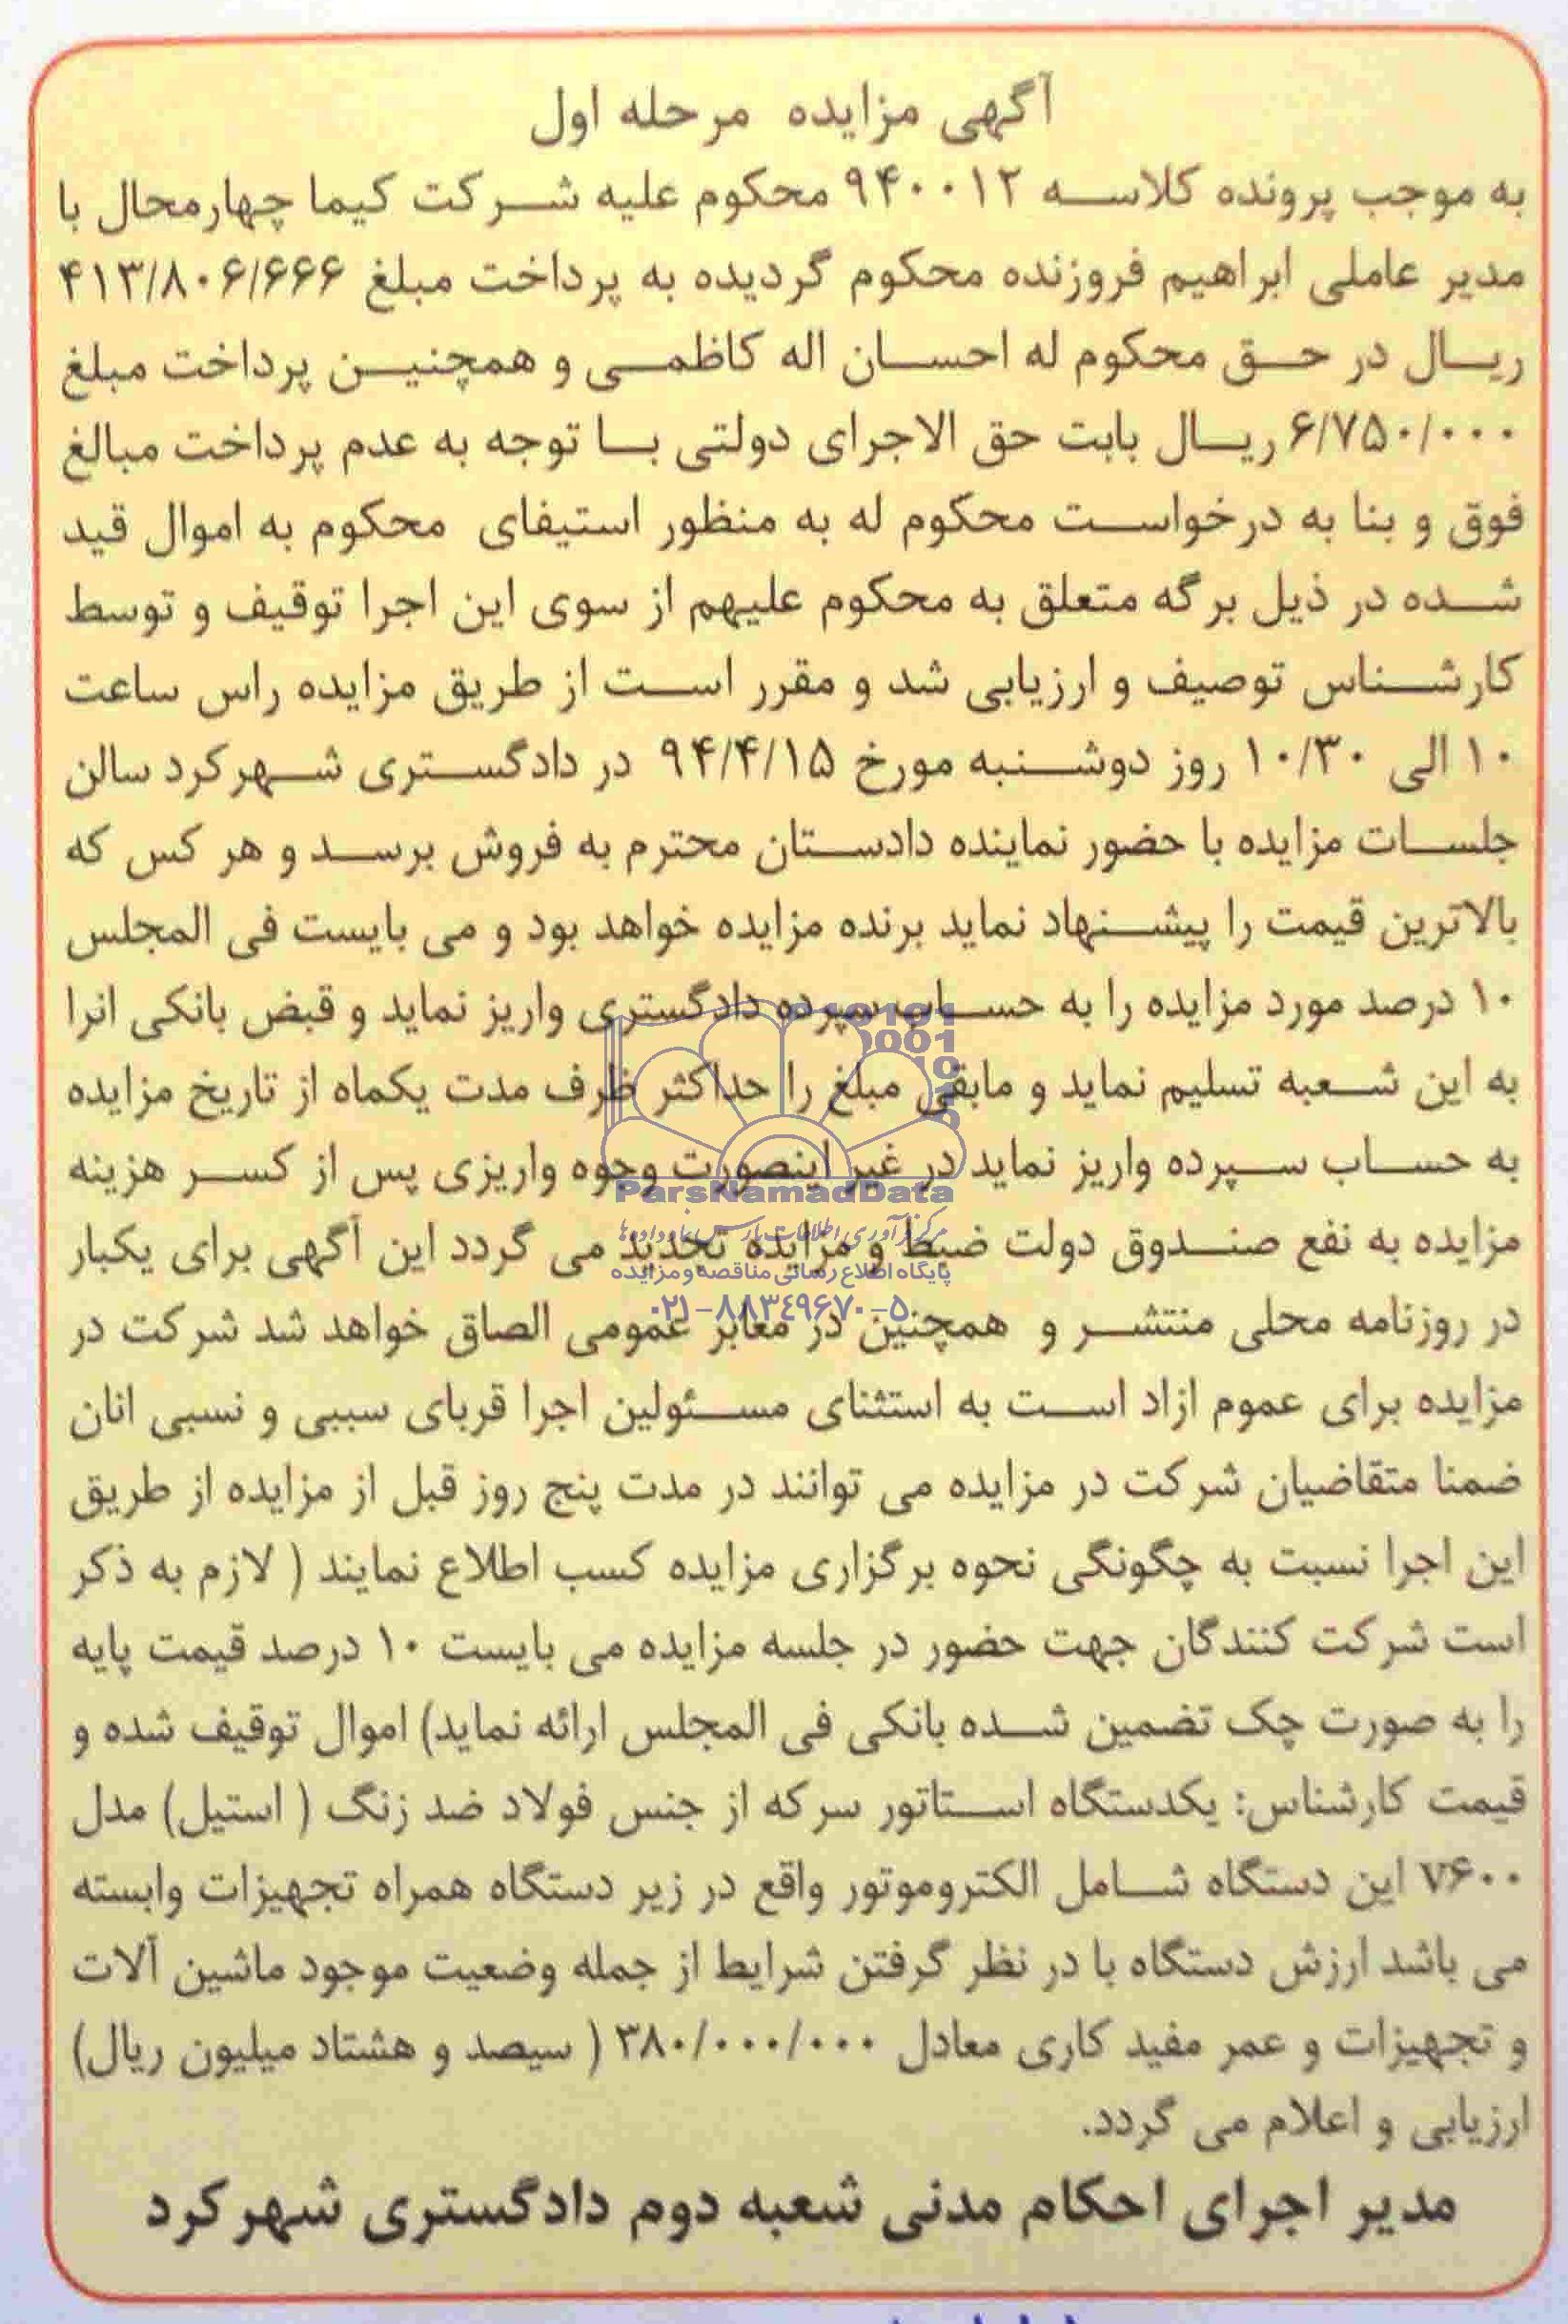 آگهی مزایده مرحله اول
به موجب پرونده کلاسه ۹۴۰۰۱۲ محکوم علیه شرکت کیما چهارمحال با
مدیر عاملی ابراهیم فروزنده محکوم گردیده به پرداخت مبلغ ۴۱۳/۸۰۶/۶۶۶
ریال در حق محکوم له احسان اله کاظمی و همچنین پرداخت مبلغ
۶/۷۵۰/۰۰۰ ریال بابت حق الاجرای دولتی با توجه به عدم پرداخت مبالغ
فوق و بنا به درخواست محکوم له به منظور استیفای محکوم به اموال قید
شده در ذیل برگه متعلق به محکوم علیهم از سوی این اجرا توقیف و توسط
کارشناس توصیف و ارزیابی شد و مقرر است از طریق مزایده راس ساعت
۱۰ الی ۱۰/۳۰ روز دوشنبه مورخ ۹۴/۴/۱۵ در دادگستری شهرکرد سالن
جلسات مزایده با حضور نماینده دادستان محترم به فروش برسد و هر کس که
بالاترین قیمت را پیشنهاد نماید برنده مزایده خواهد بود و می بایست فی المجلس
۱۰ درصد مورد مزایده را به حساب سپرده دادگستری واریز نماید و قبض بانکی انرا
به این شعبه تسلیم نماید و مابقی مبلغ را حداکثر ظرف مدت یکماه از تاریخ مزایده
به حساب سپرده واریز نماید در غیر اینصورت وجوه واریزی پس از کسر هزینه
ParsNamadData
مزایده به نفع صندوق دولت ضبط و مزایده تجدید می گردد این آگهی برای یکبار
پایگاه اطلاع رسانی مناقصه و مزایده
۰۲۱-۸۸۳۴۹۶۷۰-۵
در روزنامه محلی منتشر و همچنین در معابر عمومی الصاق خواهد شد شرکت در
مزایده برای عموم ازاد است به استثنای مسئولین اجرا قربای سببی و نسبی انان
ضمنا متقاضیان شرکت در مزایده می توانند در مدت پنج روز قبل از مزایده از طریق
این اجرا نسبت به چگونگی نحوه برگزاری مزایده کسب اطلاع نمایند ( لازم به ذکر
است شرکت کنندگان جهت حضور در جلسه مزایده می بایست ۱۰ درصد قیمت پایه
را به صورت چک تضمین شده بانکی فی المجلس ارائه نماید) اموال توقیف شده و
قیمت کارشناس: یکدستگاه استاتور سرکه از جنس فولاد ضد زنگ ( استیل) مدل
۷۶۰۰ این دستگاه شامل الکتروموتور واقع در زیر دستگاه همراه تجهیزات وابسته
می باشد ارزش دستگاه با در نظر گرفتن شرایط از جمله وضعیت موجود ماشین آلات
و تجهیزات و عمر مفید کاری معادل ۳۸۰/۰۰۰/۰۰۰ ( سیصد و هشتاد میلیون ریال)
ارزیابی و اعلام می گردد.
مدیر اجرای احکام مدنی شعبه دوم دادگستری شهرکرد